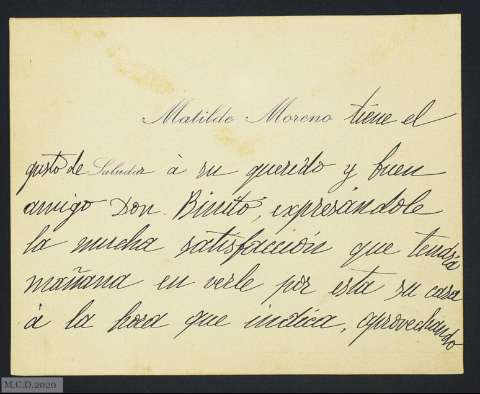 Matilde Moreno tiene el
gusto de Saludar à su querido y buen
amigo Don Binito, expresándole
la mucha satisfacción que tendrá
mañana en verle por esta su casa
à la hora que indica, aprovechando
M.C.D.2020